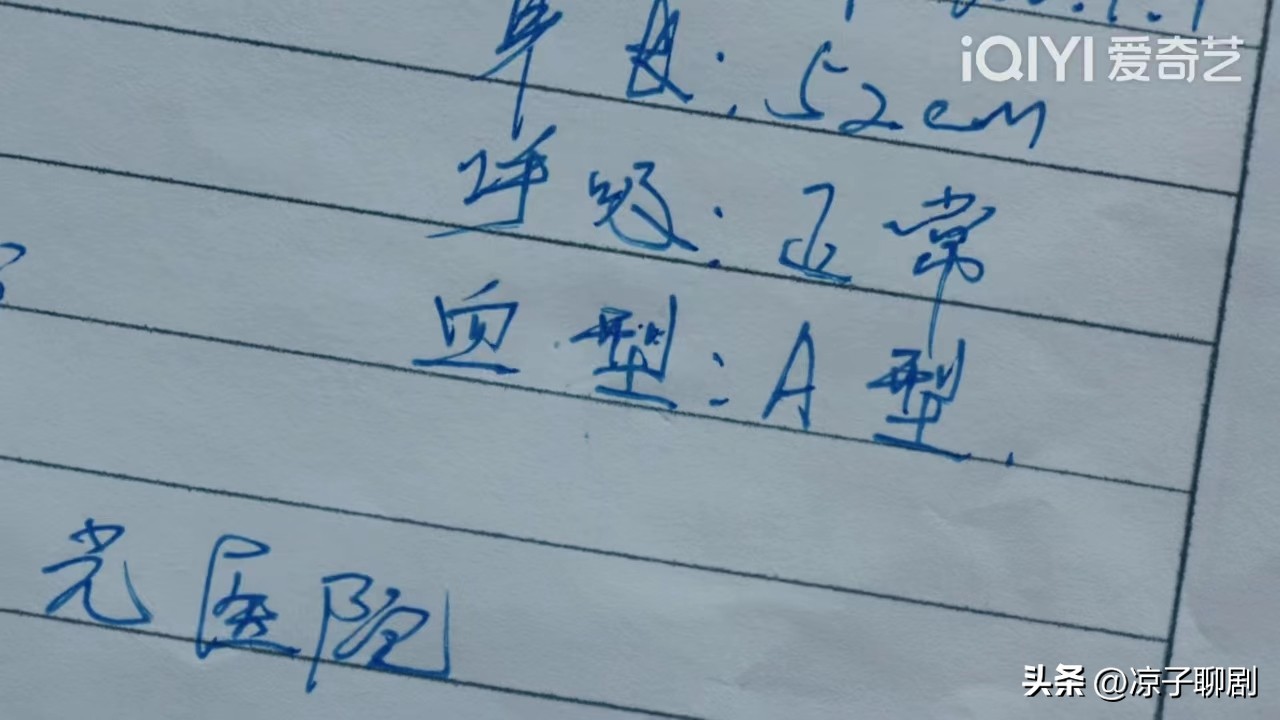 iQIYI 爱奇艺
身长:52cm
呼吸:正常
血型:A型.
光医院
头条 @凉子聊剧